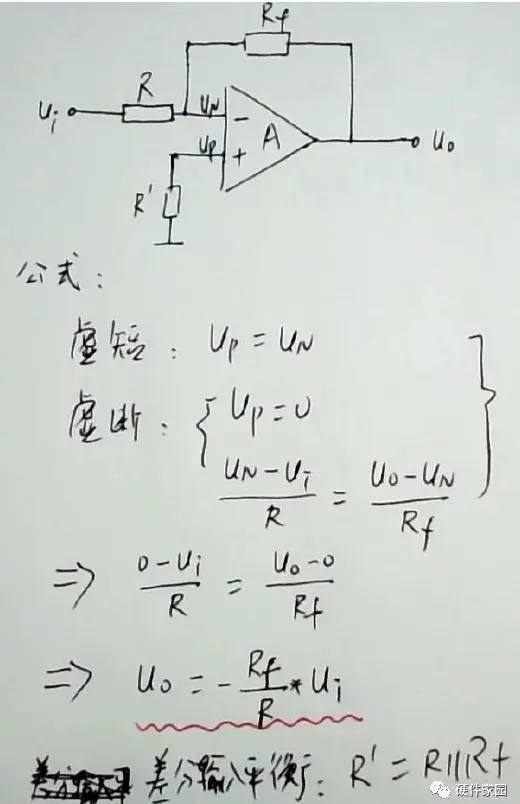 Rf
R
Ui
UN
-
A
UP
+
Uo
R'
公式:
虚短: UP = UN
虚断: { UP = 0
(UN - Ui)/R = (Uo - UN)/Rf
=> (0 - Ui)/R = (Uo - 0)/Rf
=> Uo = - Rf/R * Ui
差分输入平衡: R' = R||Rf
硬件家园